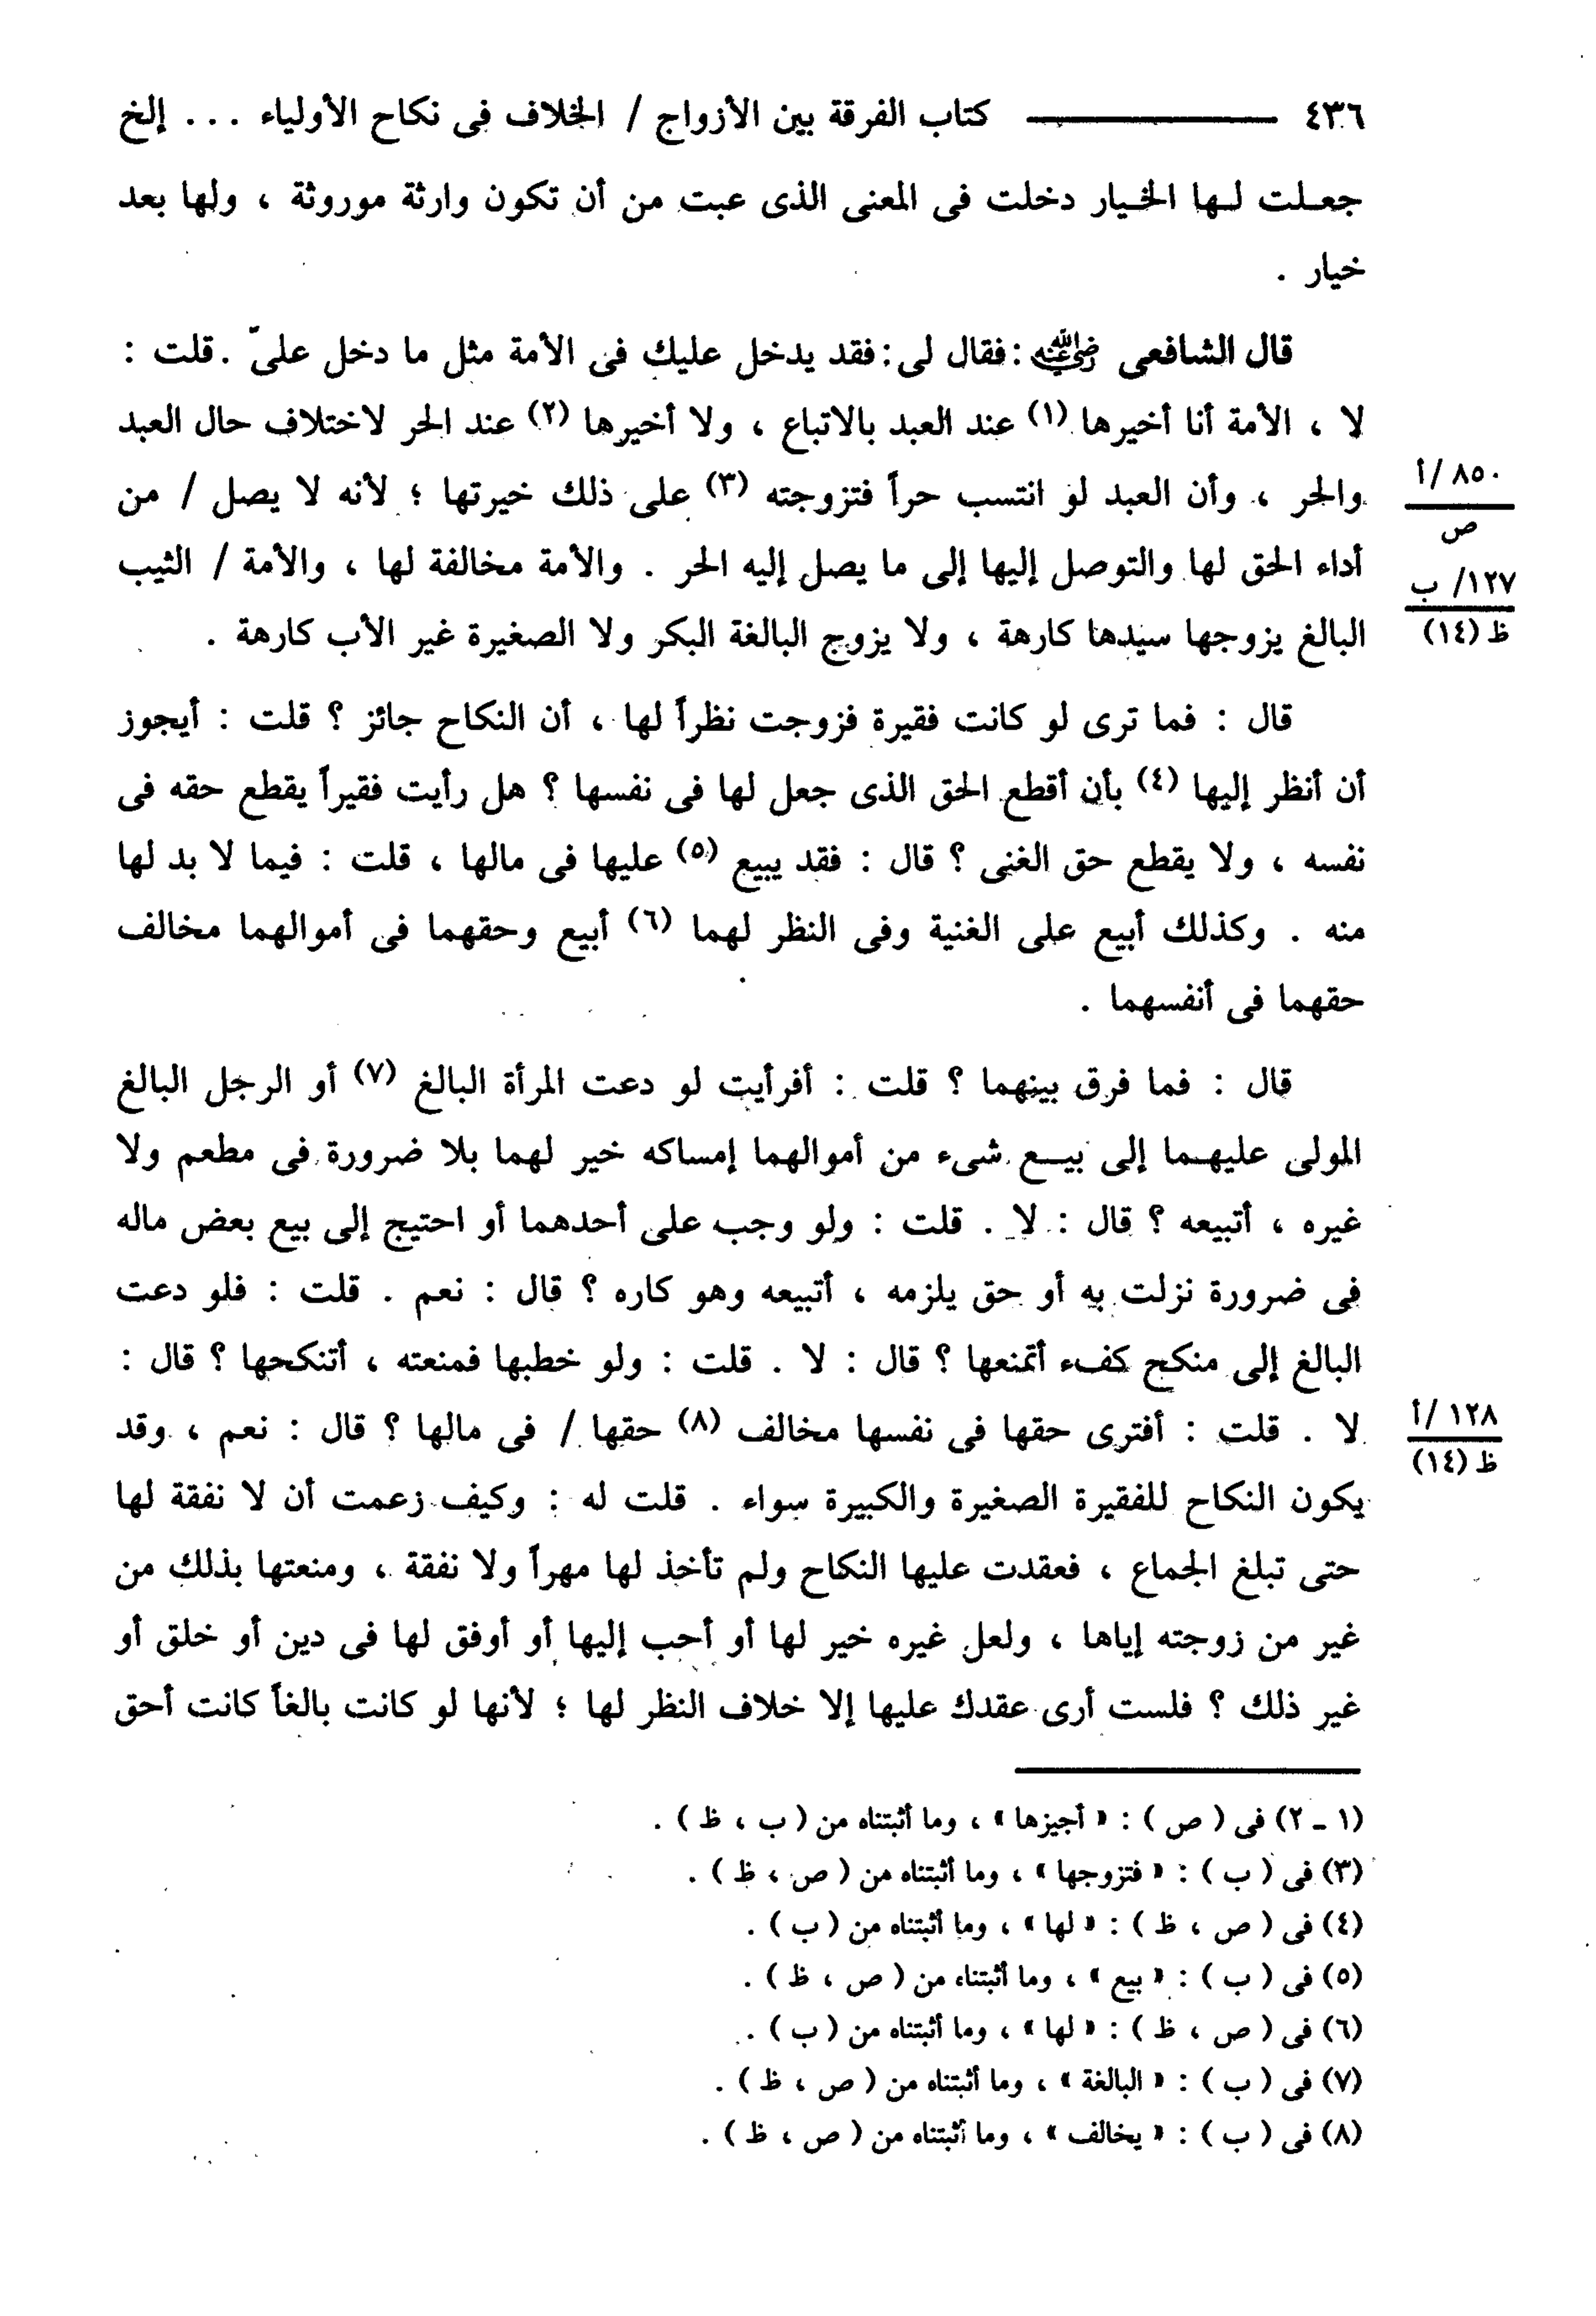 ٤٣٦ ـــــــــــ كتاب الفرقة بين الأزواج / الخلاف فى نكاح الأولياء ... إلخ
جعـلت لـها الخـيار دخلت فى المعنى الذى عبت من أن تكون وارثة موروثة ، ولها بعد
خيار .
قال الشافعى رضي الله عنه : فقال لى : فقد يدخل عليك فى الأمة مثل ما دخل علىّ . قلت :
لا ، الأمة أنا أخيرها (١) عند العبد بالاتباع ، ولا أخيرها (٢) عند الحر لاختلاف حال العبد
والحر ، وأن العبد لو انتسب حراً فتزوجته (٣) على ذلك خيرتها ؛ لأنه لا يصل / من
٨٥٠ /أ
ص
أداء الحق لها والتوصل إليها إلى ما يصل إليه الحر . والأمة مخالفة لها ، والأمة / الثيب
١٢٧/ ب
ظ (١٤)
البالغ يزوجها سيدها كارهة ، ولا يزوج البالغة البكر ولا الصغيرة غير الأب كارهة .
قال : فما ترى لو كانت فقيرة فزوجت نظراً لها ، أن النكاح جائز ؟ قلت : أيجوز
أن أنظر إليها (٤) بأن أقطع الحق الذى جعل لها فى نفسها ؟ هل رأيت فقيراً يقطع حقه فى
نفسه ، ولا يقطع حق الغنى ؟ قال : فقد يبيع (٥) عليها فى مالها ، قلت : فيما لا بد لها
منه . وكذلك أبيع على الغنية وفى النظر لهما (٦) أبيع وحقهما فى أموالهما مخالف
حقهما فى أنفسهما .
قال : فما فرق بينهما ؟ قلت : أفرأيت لو دعت المرأة البالغ (٧) أو الرجل البالغ
المولى عليهـما إلى بيـع شىء من أموالهما إمساكه خير لهما بلا ضرورة فى مطعم ولا
غيره ، أتبيعه ؟ قال : لا . قلت : ولو وجب على أحدهما أو احتيج إلى بيع بعض ماله
فى ضرورة نزلت به أو حق يلزمه ، أتبيعه وهو كاره ؟ قال : نعم . قلت : فلو دعت
البالغ إلى منكح كفء أتمنعها ؟ قال : لا . قلت : ولو خطبها فمنعته ، أتنكحها ؟ قال :
لا . قلت : أفترى حقها فى نفسها مخالف (٨) حقها / فى مالها ؟ قال : نعم ، وقد
١٢٨ /أ
ظ (١٤)
يكون النكاح للفقيرة الصغيرة والكبيرة سواء . قلت له : وكيف زعمت أن لا نفقة لها
حتى تبلغ الجماع ، فعقدت عليها النكاح ولم تأخذ لها مهراً ولا نفقة ، ومنعتها بذلك من
غير من زوجته إياها ، ولعل غيره خير لها أو أحب إليها أو أوفق لها فى دين أو خلق أو
غير ذلك ؟ فلست أرى عقدك عليها إلا خلاف النظر لها ؛ لأنها لو كانت بالغاً كانت أحق
(١ - ٢) فى ( ص ) : « أجيزها » ، وما أثبتناه من ( ب ، ظ ) .
(٣) فى ( ب ) : « فتزوجها » ، وما أثبتناه من ( ص ، ظ ) .
(٤) فى ( ص ، ظ ) : « لها » ، وما أثبتناه من ( ب ) .
(٥) فى ( ب ) : « بيع » ، وما أثبتناه من ( ص ، ظ ) .
(٦) فى ( ص ، ظ ) : « لها » ، وما أثبتناه من ( ب ) .
(٧) فى ( ب ) : « البالغة » ، وما أثبتناه من ( ص ، ظ ) .
(٨) فى ( ب ) : « يخالف » ، وما أثبتناه من ( ص ، ظ ) .